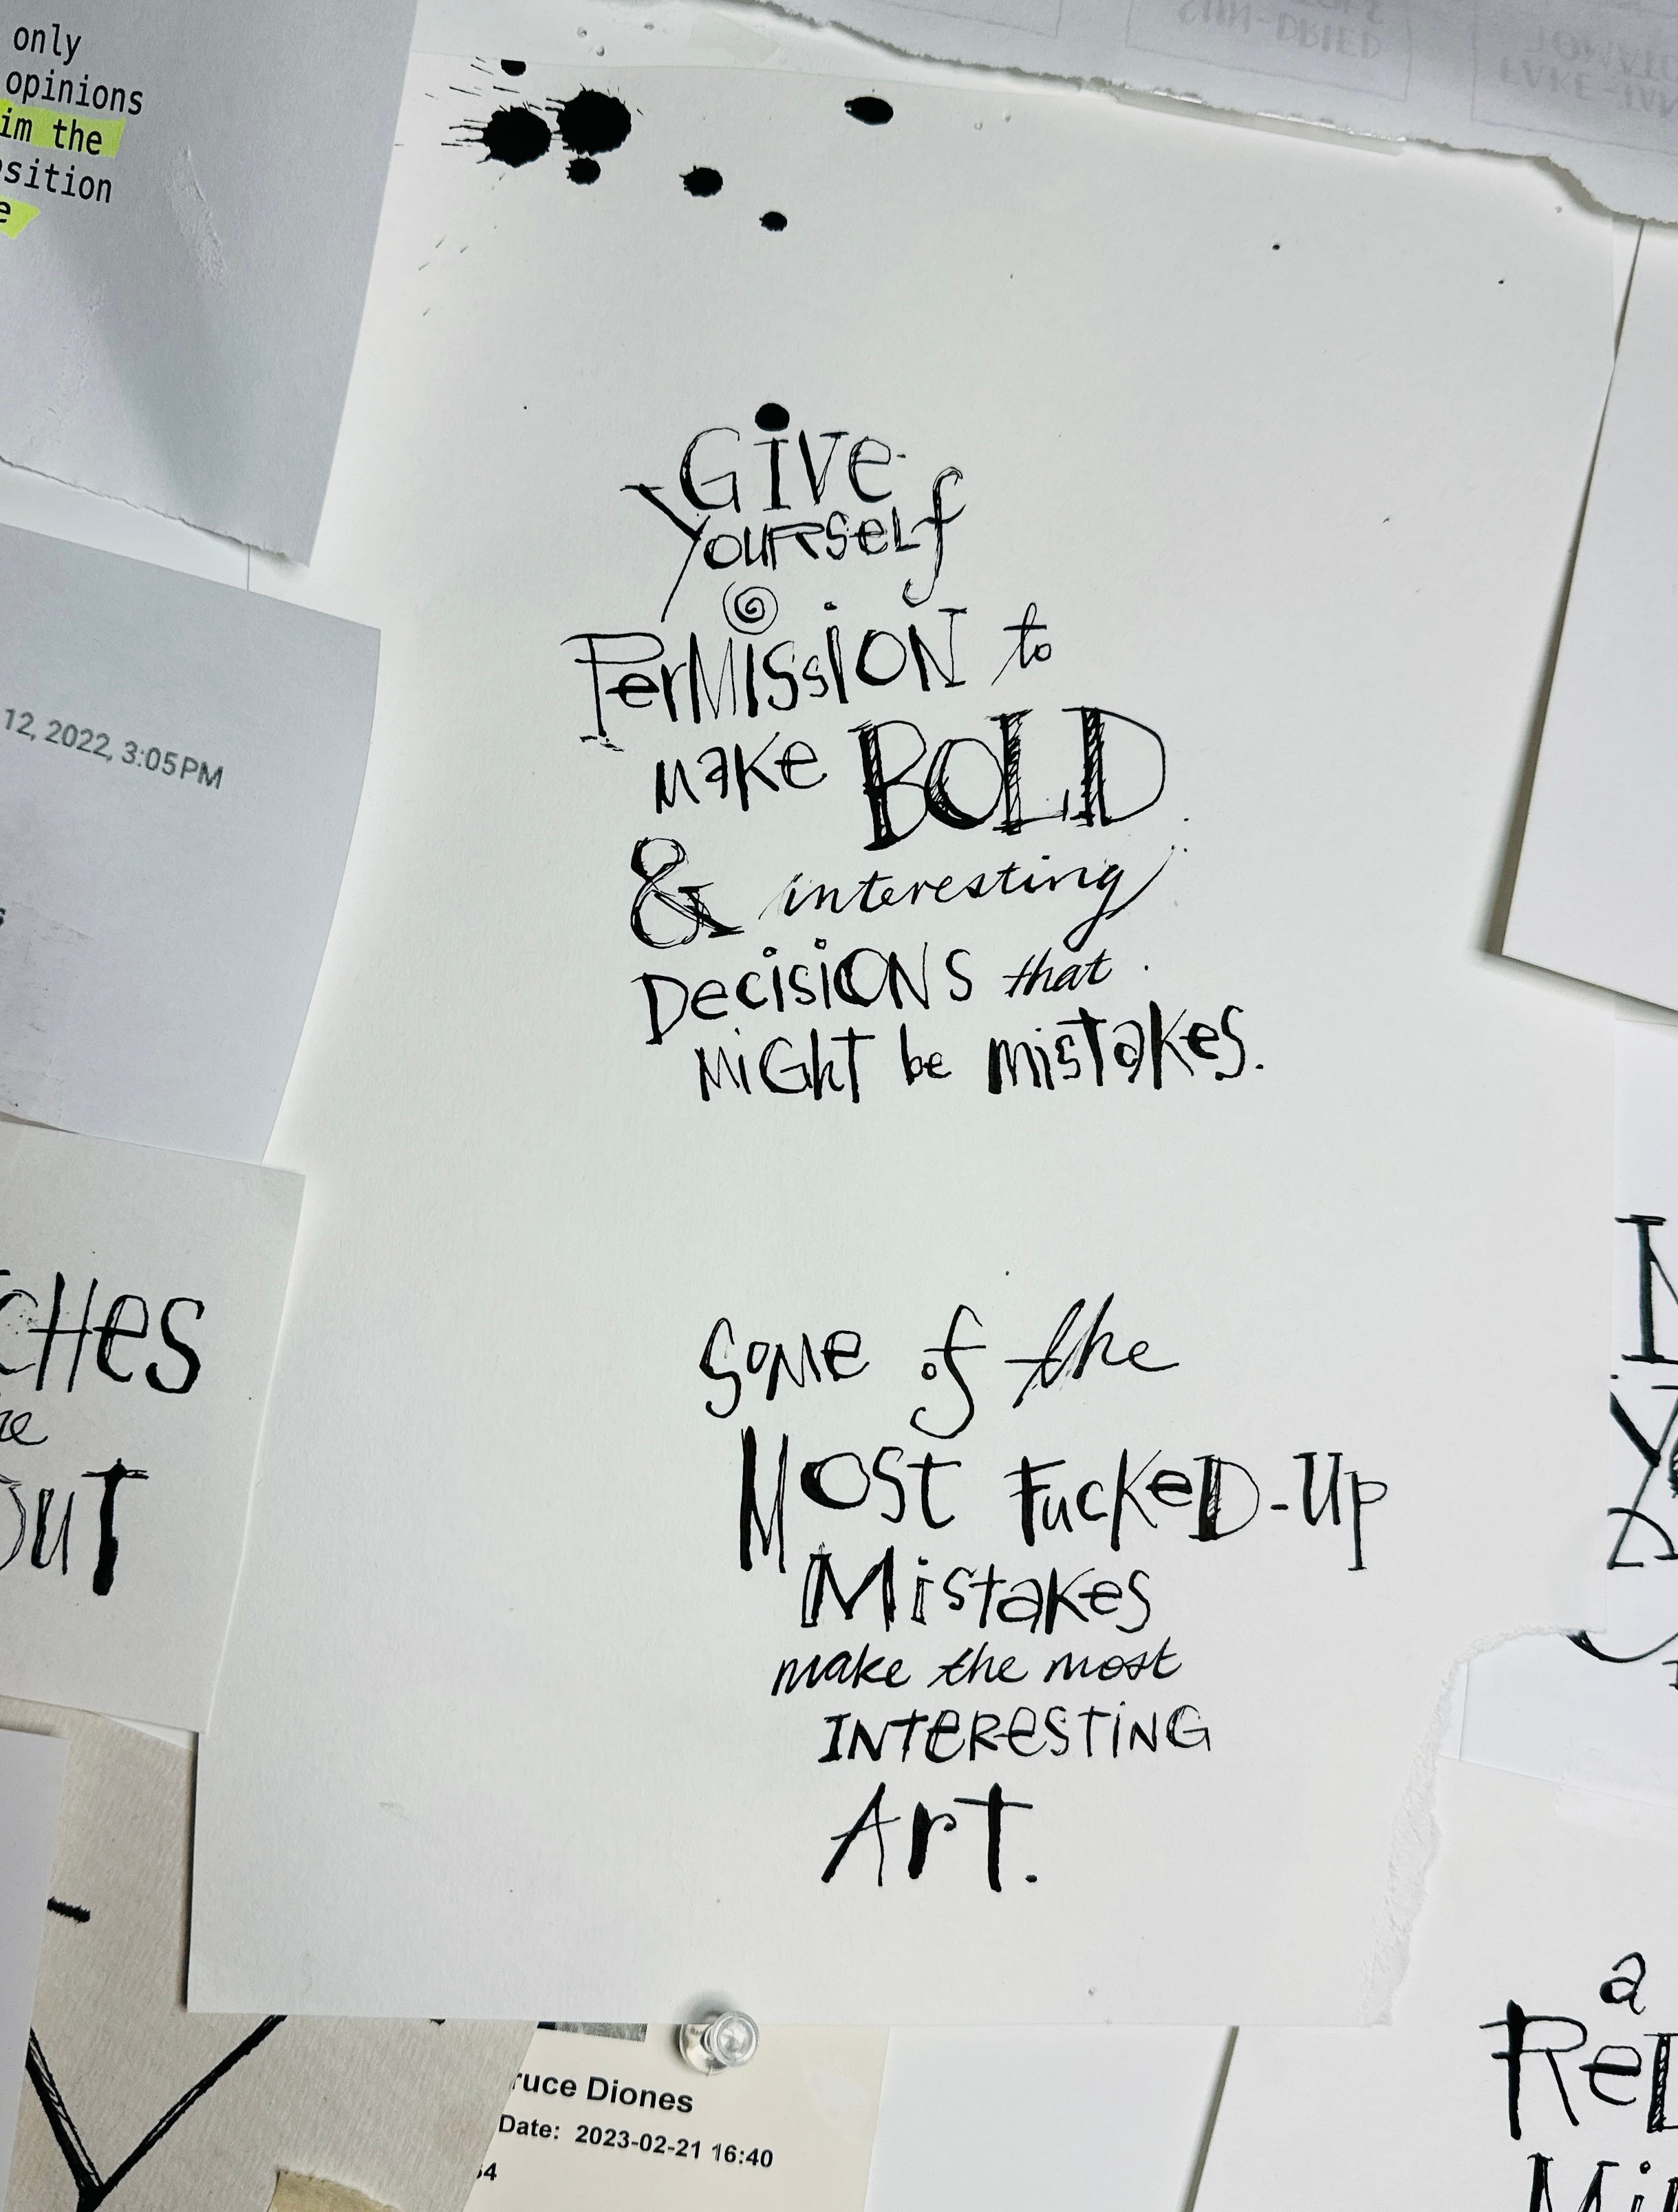 only
opinions
im the
sition
e
12, 2022, 3:05 PM
GiVe
YourseLf
PerMissiON to
make BOLD
& interesting
DecisiONS that
MiGhT be misTakes.
Some of the
MOST FuckeD-Up
Mistakes
make the most
INTeResTiNG
ArT.
cHes
ouT
ruce Diones
Date: 2023-02-21 16:40
54
SUN-DRIED
TOMAT
FAKE-TAN
N
a
ReD